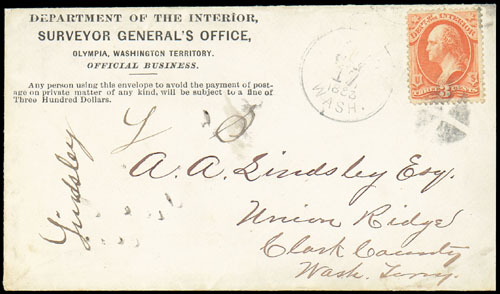 DEPARTMENT OF THE INTERIOR,
SURVEYOR GENERAL'S OFFICE,
OLYMPIA, WASHINGTON TERRITORY.
OFFICIAL BUSINESS.
Any person using this envelope to avoid the payment of post-
age on private matter of any kind, will be subject to a fine of
Three Hundred Dollars.
17
1883
WASH.
DEPT. OF THE INTERIOR
U S
3
CENTS
Lindsley
A. A. Lindsley Esq.
Union Ridge
Clark County
Wash. Terry.